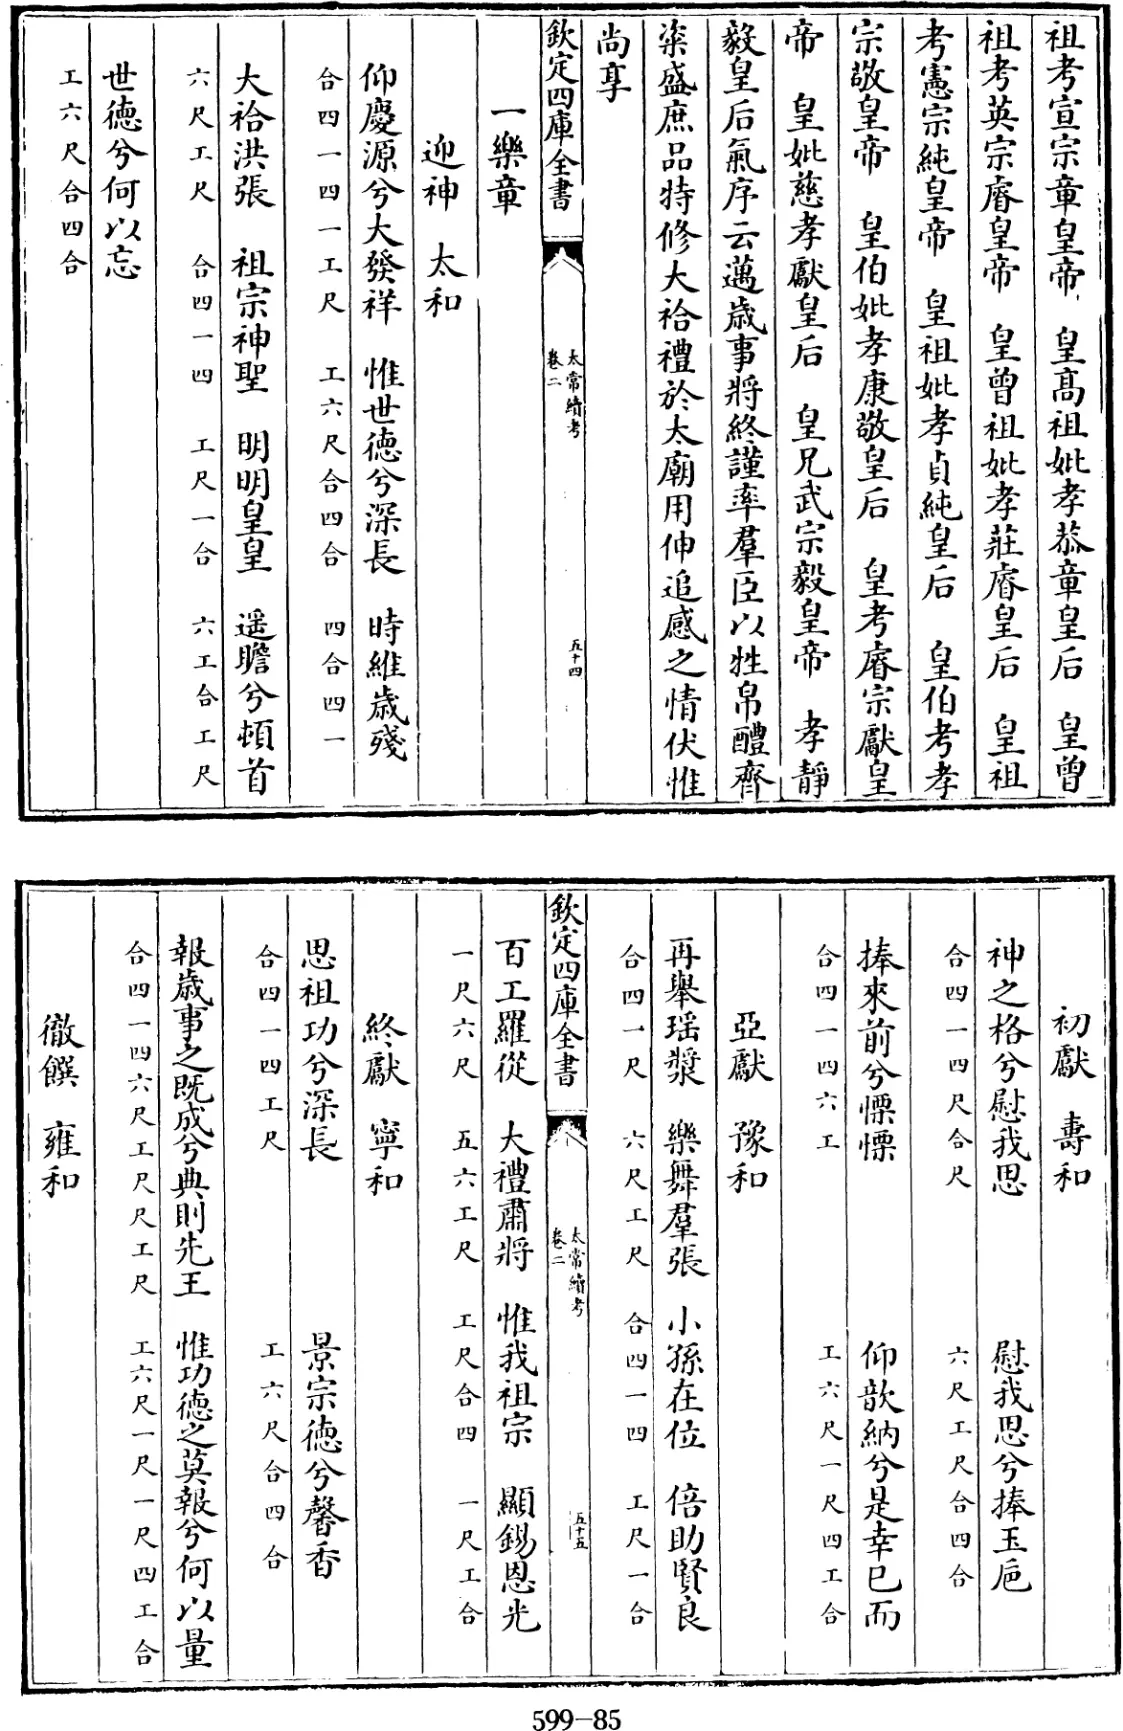 祖考宣宗章皇帝 皇高祖妣孝恭章皇后 皇曾
祖考英宗睿皇帝 皇曾祖妣孝莊睿皇后 皇祖
考憲宗純皇帝 皇祖妣孝貞純皇后 皇伯考孝
宗敬皇帝 皇伯妣孝康敬皇后 皇考睿宗獻皇
帝 皇妣慈孝獻皇后 皇兄武宗毅皇帝 孝靜
毅皇后氣序云邁歲事將終謹率羣臣以牲帛醴齊
粢盛庶品特修大祫禮於太廟用伸追感之情伏惟
尚享
欽定四庫全書 太常續考 卷二 五十四
一樂章
迎神 太和
仰慶源兮大發祥 惟世德兮深長 時維歲殘
合四一四一工尺 工六尺合四合 四合四一
大祫洪張 祖宗神聖 明明皇皇 遥瞻兮頓首
六尺工尺 合四一四 工尺一合 六工合工尺
世德兮何以忘
工六尺合四合
初獻 壽和
神之格兮慰我思 慰我思兮捧玉巵
合四一四尺合尺 六尺工尺合四合
捧來前兮慄慄 仰歆納兮是幸已而
合四一四六工 工六尺一尺四工合
亞獻 豫和
再舉瑶漿 樂舞羣張 小孫在位 倍助賢良
合四一尺 六尺工尺 合四一四 工尺一合
欽定四庫全書 太常續考 卷二 五十五
百工羅從 大禮肅將 惟我祖宗 顯錫恩光
一尺六尺 五六工尺 工尺合四 一尺工合
終獻 寧和
思祖功兮深長 景宗德兮馨香
合四一四工尺 工六尺合四合
報歲事之既成兮典則先王 惟功德之莫報兮何以量
合四一四六尺工尺尺工尺 工六尺一尺一尺四工合
徹饌 雍和
599-85